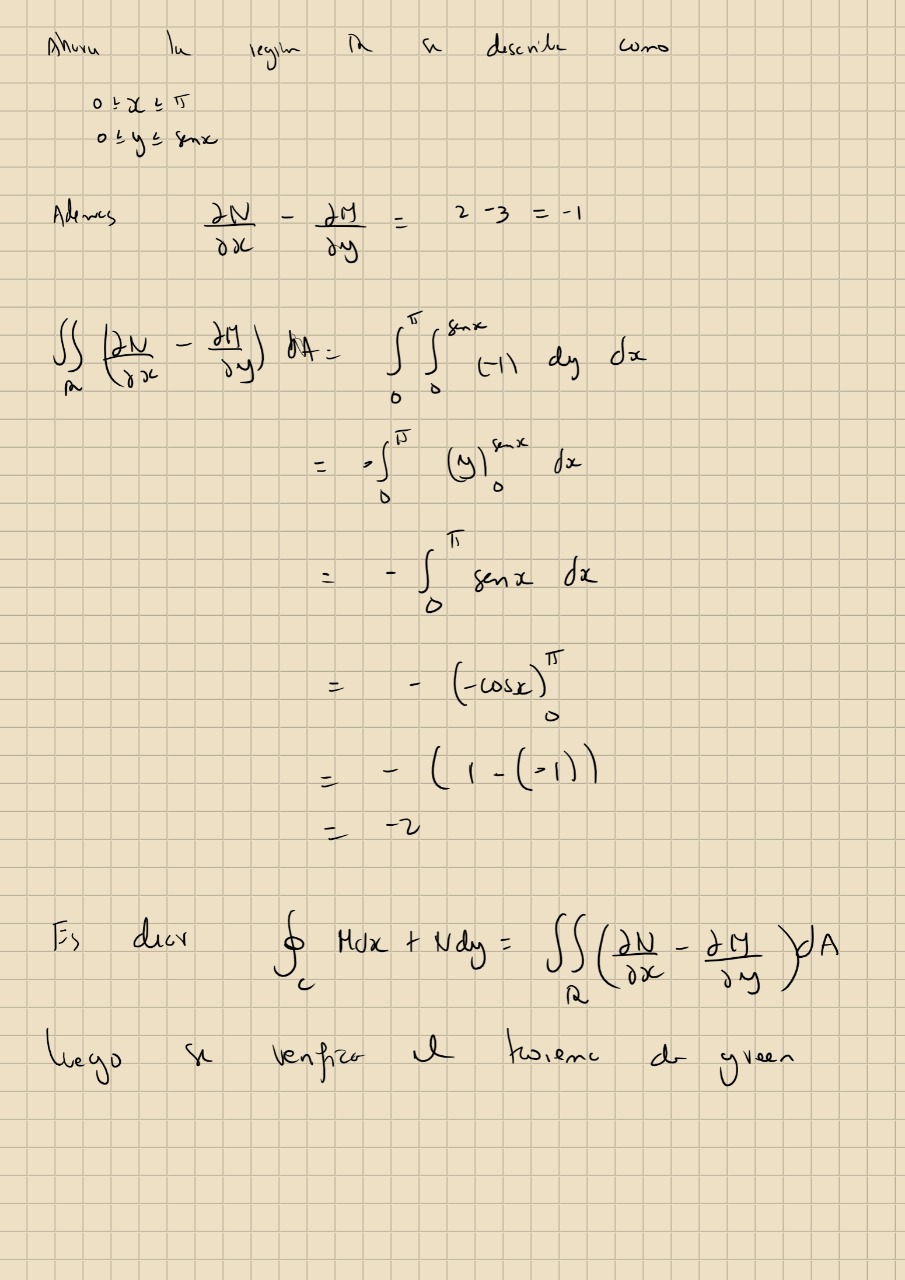 Ahora la region R se describe como
0 ≤ x ≤ π
0 ≤ y ≤ senx
Ademas ∂N/∂x - ∂M/∂y = 2 - 3 = -1
∬_R (∂N/∂x - ∂M/∂y) dA = ∫_0^π ∫_0^senx (-1) dy dx
= -∫_0^π (y)_0^senx dx
= - ∫_0^π senx dx
= - (-cosx)_0^π
= - (1 - (-1))
= -2
Es decir ∮_C Mdx + Ndy = ∬_R (∂N/∂x - ∂M/∂y) dA
luego se verifica el teorema de green